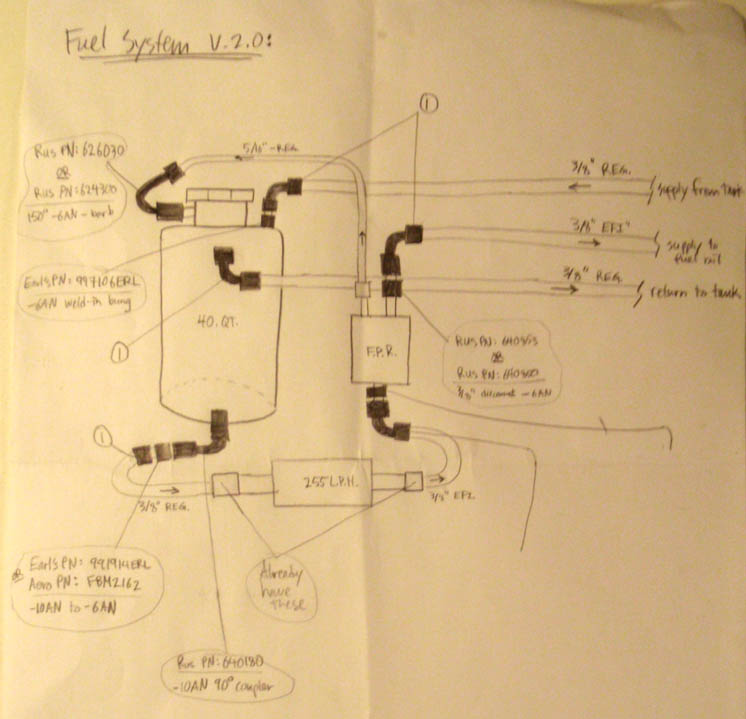 Fuel System V.2.0:
①
5/16"-REG.
Rus PN: 626030
OR
Rus PN: 624300
150° -6AN - barb
3/8" REG.
supply from tank
3/8" EFI"
supply to
fuel rail
3/8" REG.
return to tank
Earl's PN: 997106ERL
-6AN weld-in bung
40. QT.
①
F.P.R.
Rus PN: 640853
OR
Rus PN: 640850
3/8" disconnect -6AN
①
255 L.P.H.
3/8" REG.
3/8" EFI.
Earl's PN: 991914ERL
OR
Aero PN: FBM2162
-10AN to -6AN
Already
have
these
Rus PN: 640180
-10AN 90° coupler